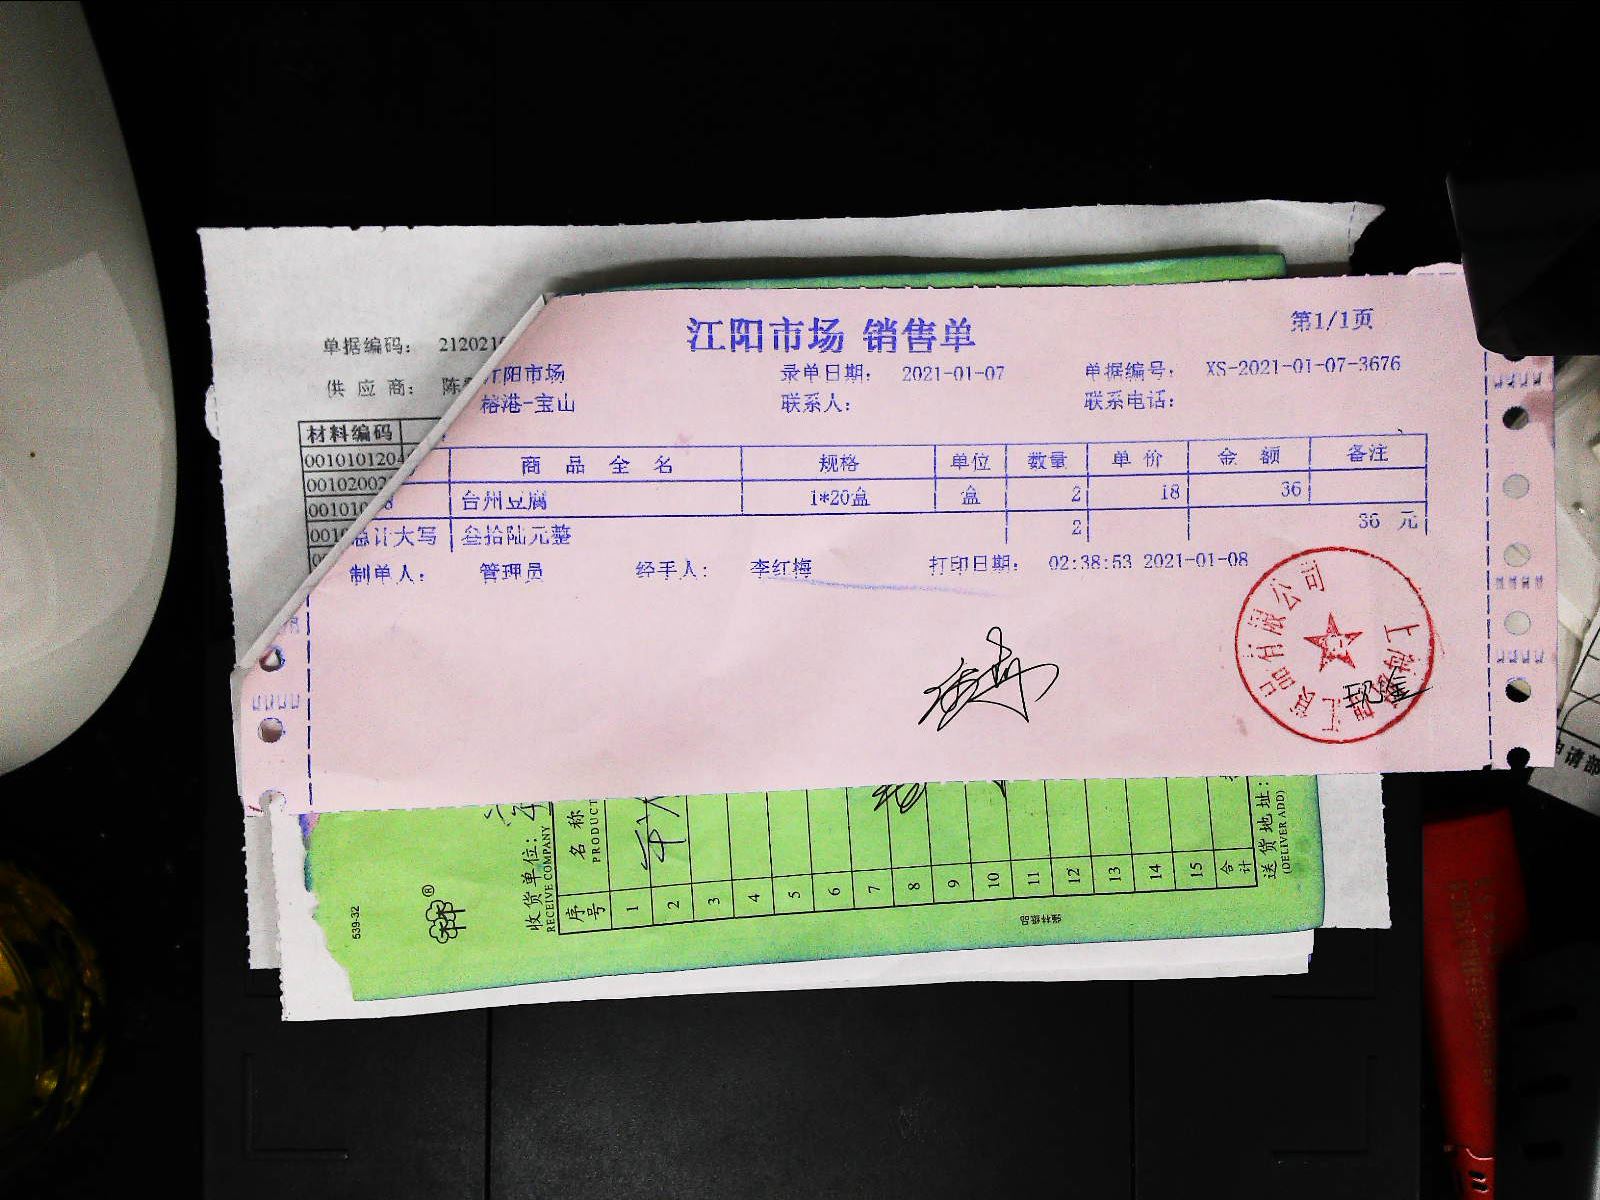 江阳市场 销售单
第1/1页
单据编码: 212021
江阳市场
录单日期: 2021-01-07
单据编号: XS-2021-01-07-3676
供应商: 陈
榕港-宝山
联系人:
联系电话:
材料编码
0010101204
00102002
001010
001
商品全名 规格 单位 数量 单价 金额 备注
8 台州豆腐 1*20盒 盒 2 18 36
总计大写 叁拾陆元整 2 36 元
制单人: 管理员 经手人: 李红梅 打印日期: 02:38:53 2021-01-08
品有限公司
上海
现金
539-32
收货单位:
RECEIVE COMPANY
序号 名称
PRODUCT
1
2
3
4
5
6
7
8
9
10
11
12
13
14
15
合计
送货地址:
(DELIVER ADD)
申请部